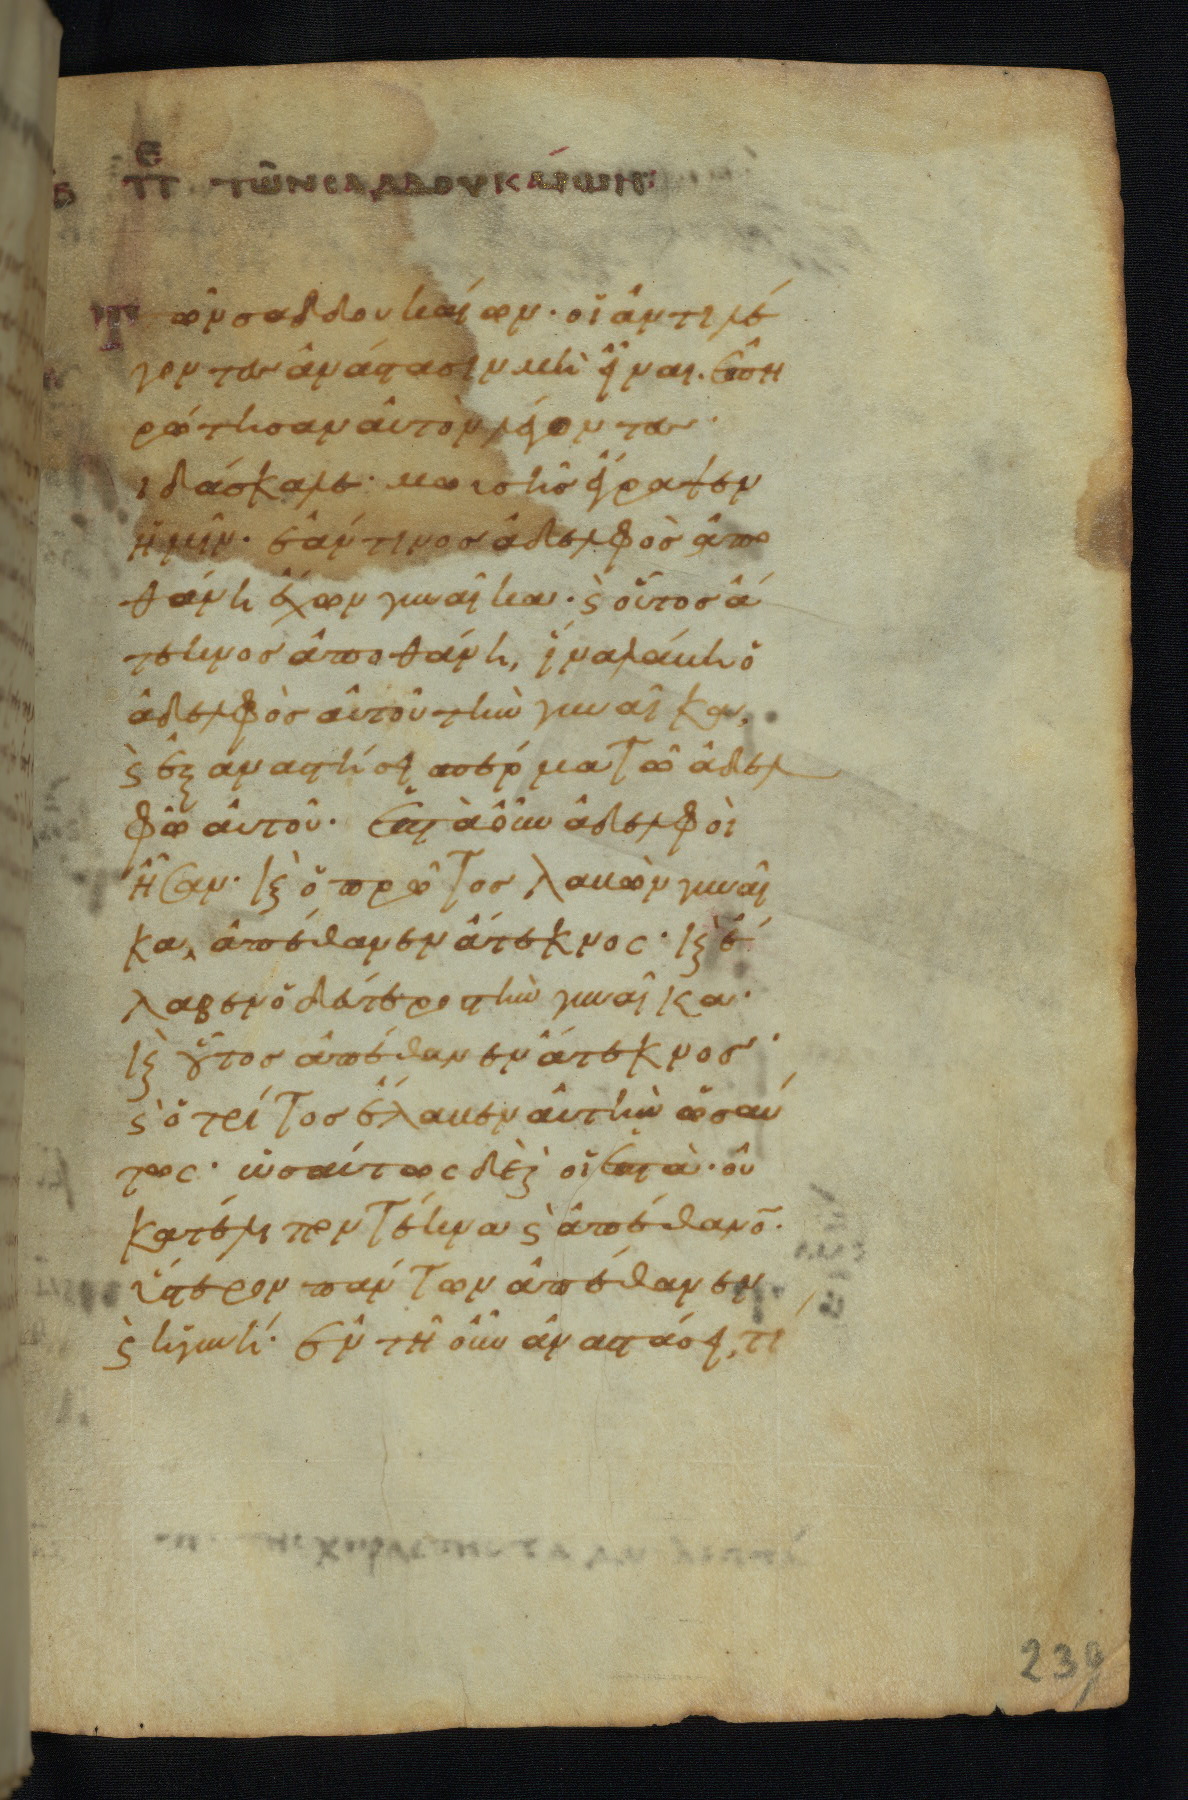 πε τῶν σαδδουκαίων:
Τῶν σαδδουκαίων· οἱ ἀντιλέ
γοντες ἀνάστασιν μὴ εἶναι. ἐπη
ρώτησαν αὐτὸν λέγοντες·
ιδάσκαλε· μωϊσῆς ἔγραψεν
ἡμῖν· ἐάν τινος ἀδελφὸς ἀπο
θάνη ἔχων γυναῖκα· ϛ οὗτος ἄ
τεκνος ἀποθάνη, ἵνα λάβη ὁ
ἀδελφὸς αὐτοῦ τὴν γυναῖκα,
ϛ ἐξαναστήσει σπέρμα τῶ ἀδελ
φῶ αὐτοῦ· ἑπτὰ οὖν ἀδελφοὶ
ἦσαν· κϛ ὁ πρῶτος λαβὼν γυναῖ
κα, ἀπέθανεν ἄτεκνος· κϛ ἔ
λαβεν ὁ δεύτερος τὴν γυναῖκα·
κϛ οὗτος ἀπέθανεν ἄτεκνος·
ϛ ὁ τρίτος ἔλαβεν αὐτὴν ὡσαύ
τως· ὡσαύτως δὲ ϛ οἱ ἑπτὰ· οὐ
κατέλιπον τέκνα ϛ ἀπέθανο̄·
ὕστερον πάντων ἀπέθανεν
ϛ ἡ γυνή· ἐν τῆ οὖν ἀναστάσει, τί
239